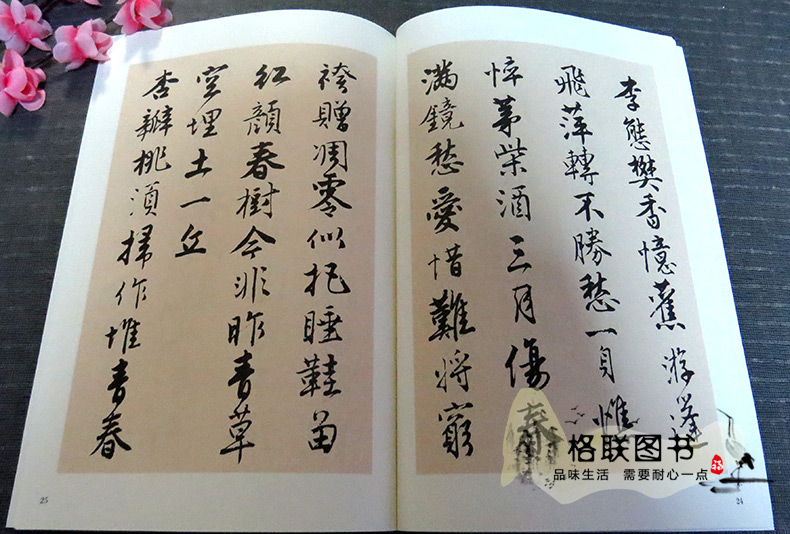 李態樊香憶舊游蓬
飛萍轉不勝愁一身憔
悴茅柴酒三月傷春
滿鏡愁愛惜難將窮
袴贈凋零似把睡鞋留
紅顏春樹今非昨青草
空埋土一丘
杏瓣桃須掃作堆青春
25
24
格联图书
品味生活 需要耐心一点